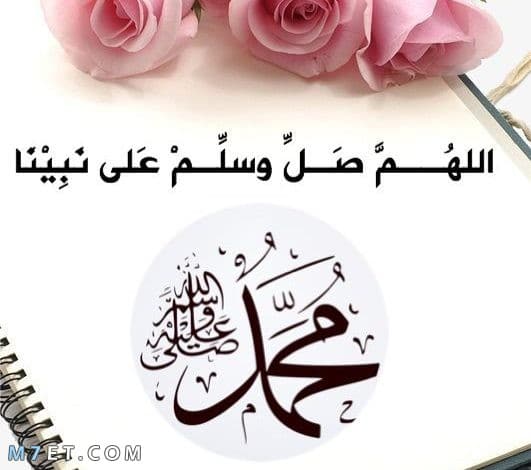 اللهُـــمَّ صَــلِّ وسلِّــمْ عَلى نَبِيْنَا
مُحَمَّدٌ
صلى الله عليه وسلم
M7ET.COM